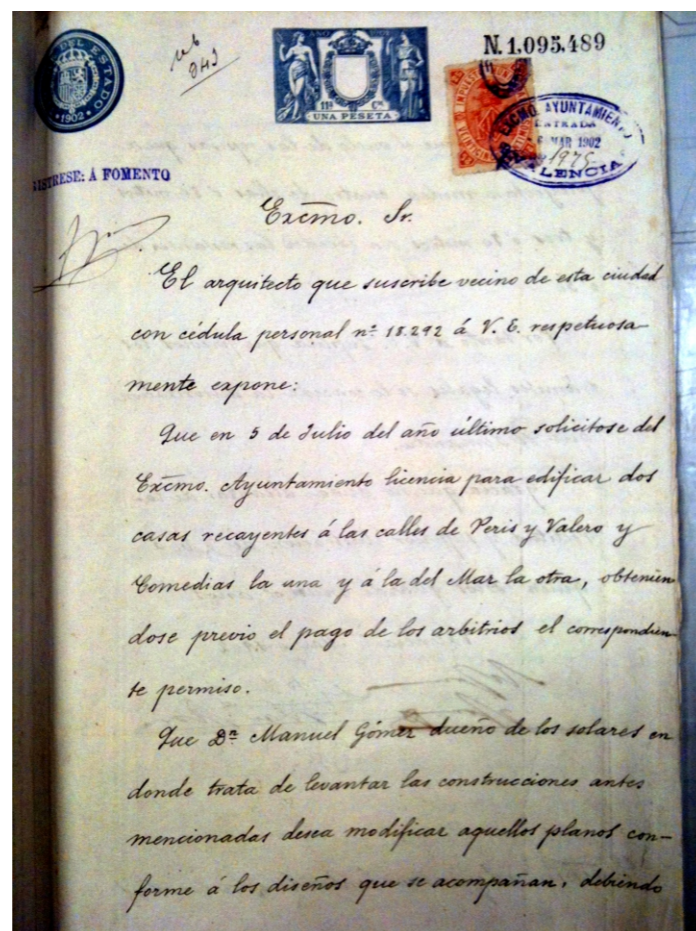 DEL ESTADO
1902
AÑO
11ª Cˢ
UNA PESETA
N.1.095.489
EXCMO. AYUNTAMIENTO
ENTRADA
MAR 1902
1975
VALENCIA
STRESE: Á FOMENTO
Excmo. Sr.
El arquitecto que suscribe vecino de esta ciudad
con cédula personal nº 18.292 á V. E. respetuosa-
mente expone:
Que en 5 de Julio del año último solicitose del
Excmo. Ayuntamiento licencia para edificar dos
casas recayentes á las calles de Peris y Valero y
Comedias la una y á la del Mar la otra, obtenien
dose previo el pago de los arbitrios el correspondien-
te permiso.
Que Dⁿ Manuel Gómez dueño de los solares en
donde trata de levantar las construcciones antes
mencionadas desea modificar aquellos planos con-
forme á los diseños que se acompañan, debiendo